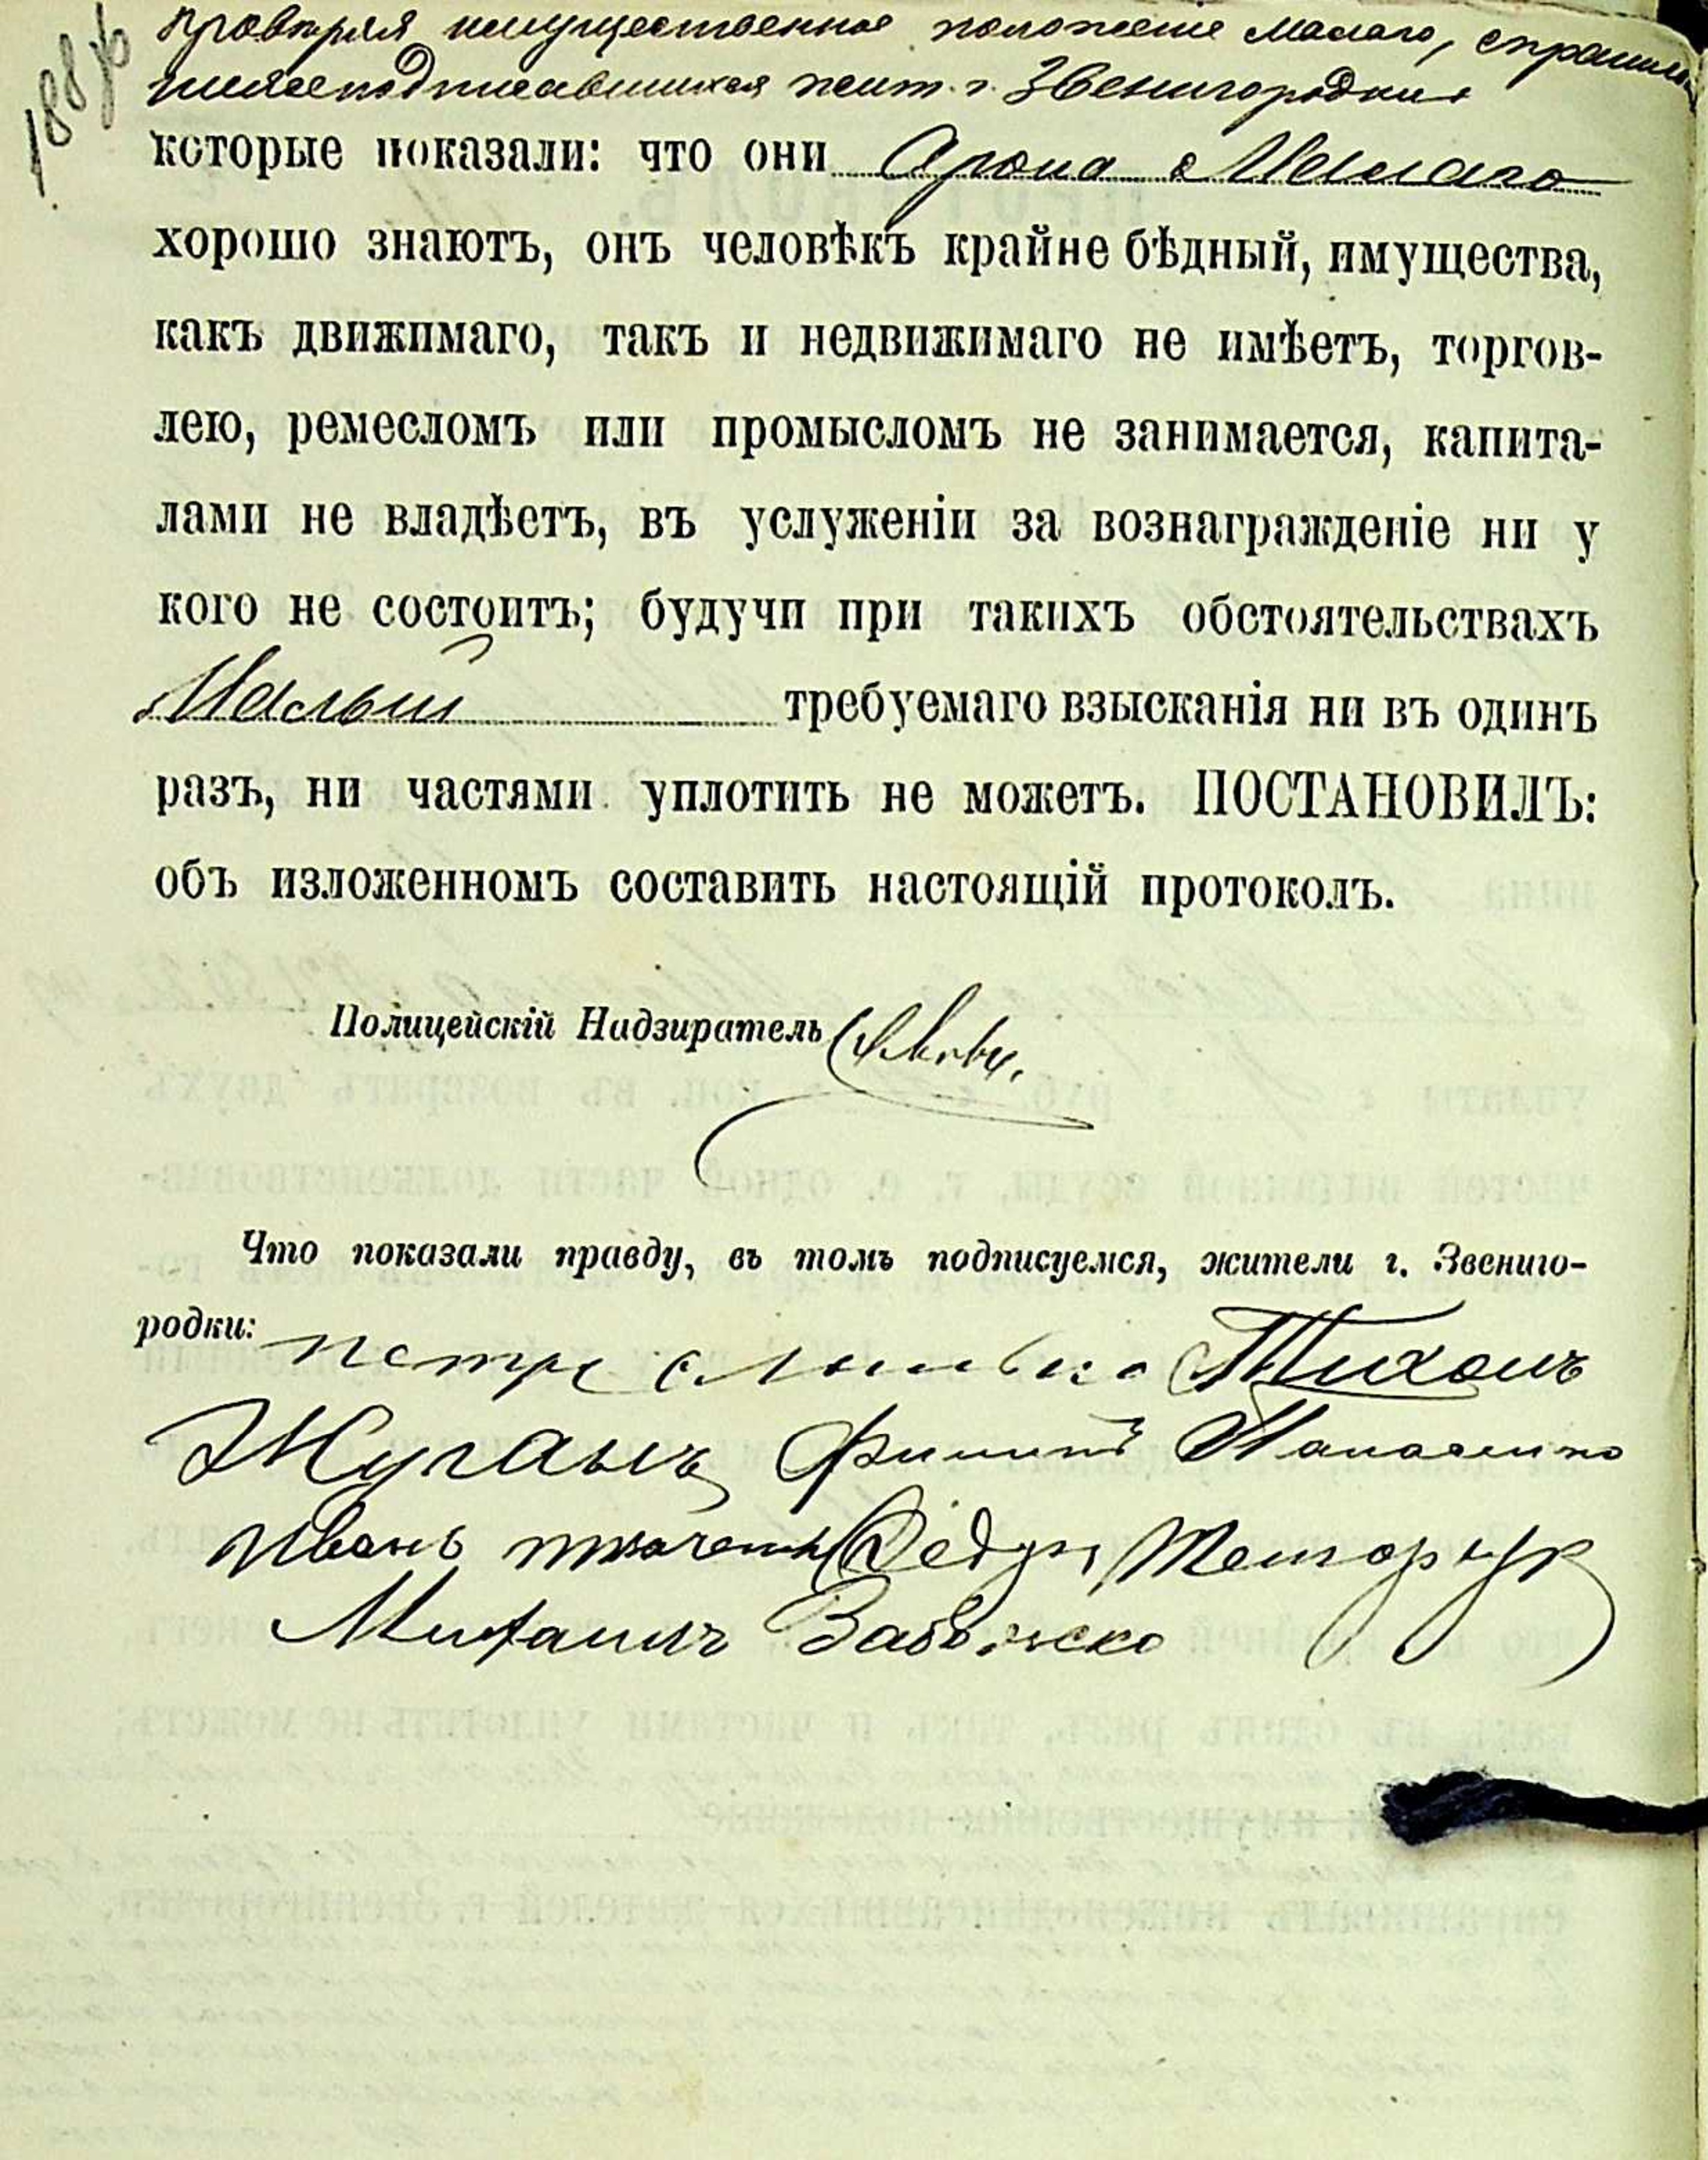 188
провѣряя имущественное положеніе Малаго, спрашивал
нижеподписавшихся жит. г. Звенигородки
которые показали: что они Арона Малаго
хорошо знаютъ, онъ человѣкъ крайне бѣдный, имущества,
какъ движимаго, такъ и недвижимаго не имѣетъ, торгов-
лею, ремесломъ или промысломъ не занимается, капита-
лами не владѣетъ, въ услуженіи за вознагражденіе ни у
кого не состоитъ; будучи при такихъ обстоятельствахъ
Малый требуемаго взысканія ни въ одинъ
разъ, ни частями уплотить не можетъ. ПОСТАНОВИЛЪ:
объ изложенномъ составить настоящій протоколъ.
Полицейскій Надзиратель
Что показали правду, въ томъ подписуемся, жители г. Звениго-
родки: петр Тихонъ
Жуганъ Филипъ Панасенко
Иванъ ткаченко Федър
Михаилъ